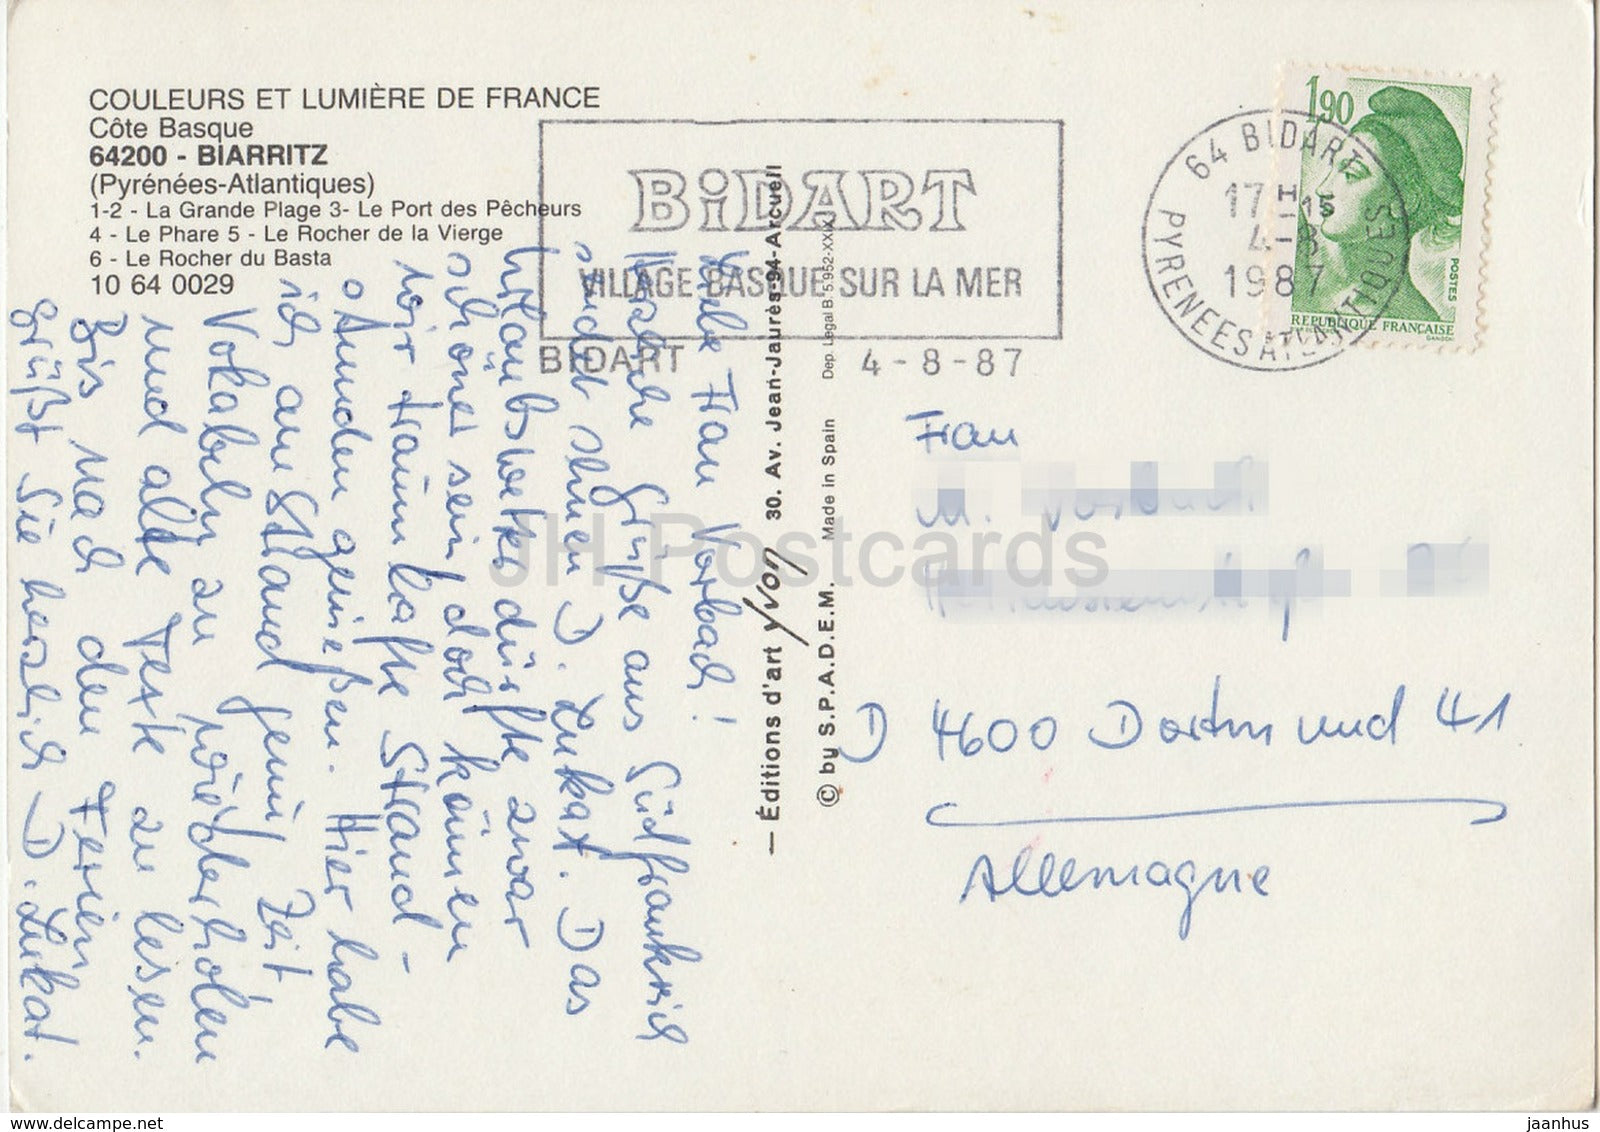 COULEURS ET LUMIÈRE DE FRANCE
Côte Basque
64200 - BIARRITZ
(Pyrénées-Atlantiques)
1-2 - La Grande Plage 3- Le Port des Pêcheurs
4 - Le Phare 5 - Le Rocher de la Vierge
6 - Le Rocher du Basta
10 64 0029
BiDART
VILLAGE BASQUE SUR LA MER
BIDART 4-8-87
64 BIDART
17 H 15
4-8
1987
PYRENEES ATLANTIQUES
1,90
POSTES
REPUBLIQUE FRANÇAISE
GANDON
Liebe Frau Vorbach!
Herzliche Grüße aus Südfrankreich
sendet Ihnen D. Lukat. Das
Urlaubswetter dürfte zwar
schöner sein, doch können
wir traumhafte Strand-
stunden genießen. Hier habe
ich am Strand genug Zeit
Vokabeln zu wiederholen
und alte Texte zu lesen.
Bis nach den Ferien
grüßt Sie herzlich D. Lukat.
— Éditions d'art Yvon 30. Av. Jean-Jaurès-94-Arcueil
© by S.P.A.D.E.M. Made in Spain Dep. Legal B. 5952-XXIX
Frau
M.
D 4600 Dortmund 41
Allemagne
JH Postcards
www.delcampe.net
jaanhus